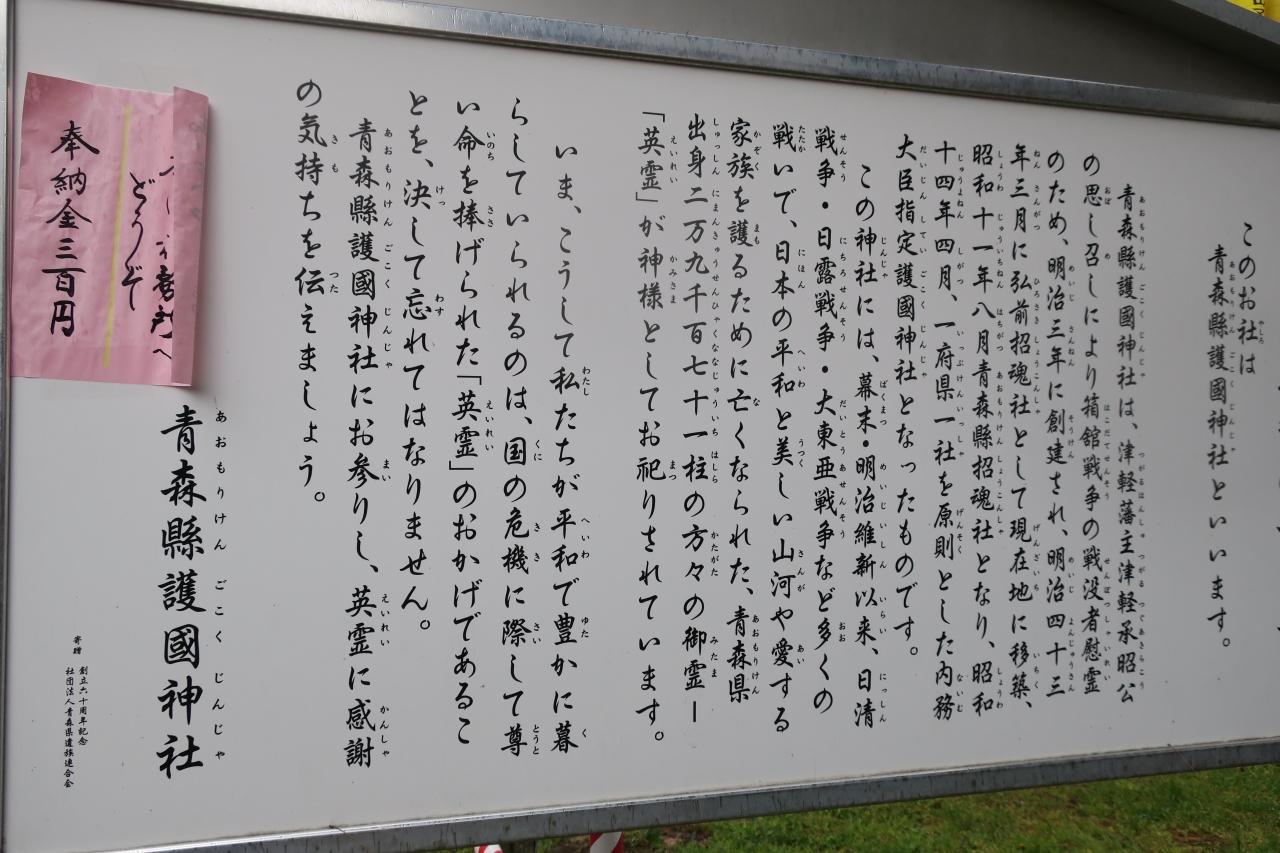 このお社は
青森縣護國神社といいます。
青森縣護國神社は、津軽藩主津軽承昭公
の思し召しにより箱舘戦争の戦没者慰霊
のため、明治三年に創建され、明治四十三
年三月に弘前招魂社として現在地に移築、
昭和十一年八月青森縣招魂社となり、昭和
十四年四月、一府県一社を原則とした内務
大臣指定護國神社となったものです。
この神社には、幕末・明治維新以来、日清
戦争・日露戦争・大東亜戦争など多くの
戦いで、日本の平和と美しい山河や愛する
家族を護るために亡くなられた、青森県
出身二万九千百七十一柱の方々の御霊ー
「英霊」が神様としてお祀りされています。
いま、こうして私たちが平和で豊かに暮
らしていられるのは、国の危機に際して尊
い命を捧げられた「英霊」のおかげであるこ
とを、決して忘れてはなりません。
青森縣護國神社にお参りし、英霊に感謝
の気持ちを伝えましょう。
青森縣護國神社
あおもりけん ごこく じんじゃ
寄贈
創立六十周年記念
社団法人青森県遺族連合会
どうぞ
奉納金三百円